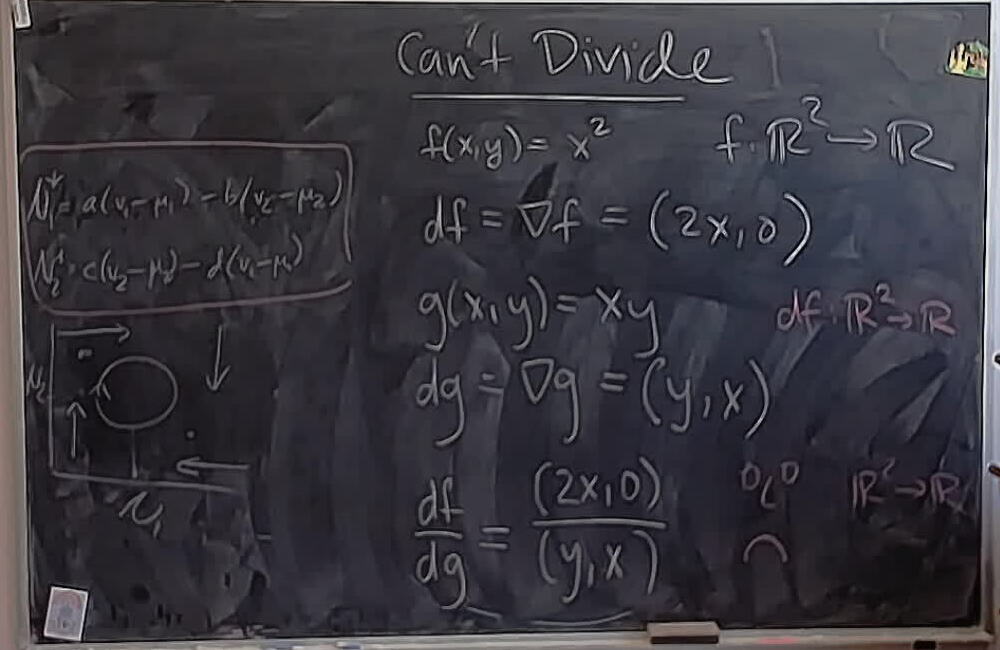 Can't Divide
f(x,y) = x² f: ℝ² → ℝ
df = ∇f = (2x, 0)
g(x,y) = xy df: ℝ² → ℝ
dg = ∇g = (y, x)
df/dg = (2x,0)/(y,x) ℝ² → ℝ
= a(v₁-μ₁) - b(v₂-μ₂)
c(v₂-μ₂) - d(v₁-μ₁)
N₂
N₁